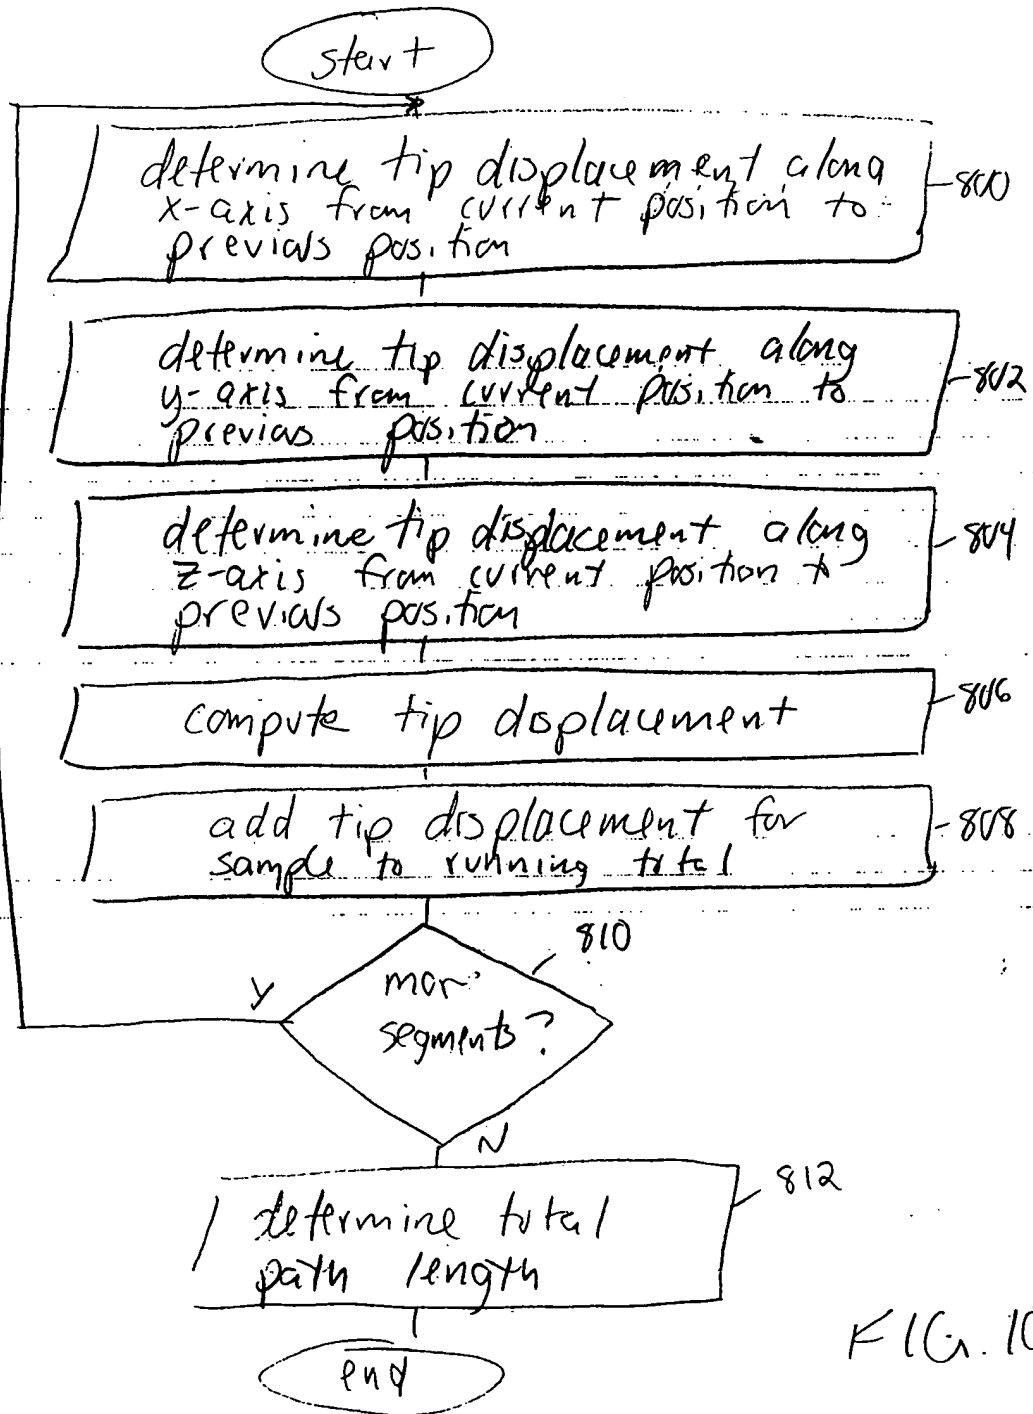 start
determine tip displacement along
x-axis from current position to
previous position
800
determine tip displacement along
y-axis from current position to
previous position
802
determine tip displacement along
z-axis from current position to
previous position
804
compute tip displacement
806
add tip displacement for
sample to running total
808
810
Y
more
segments?
N
determine total
path length
812
end
FIG. 10